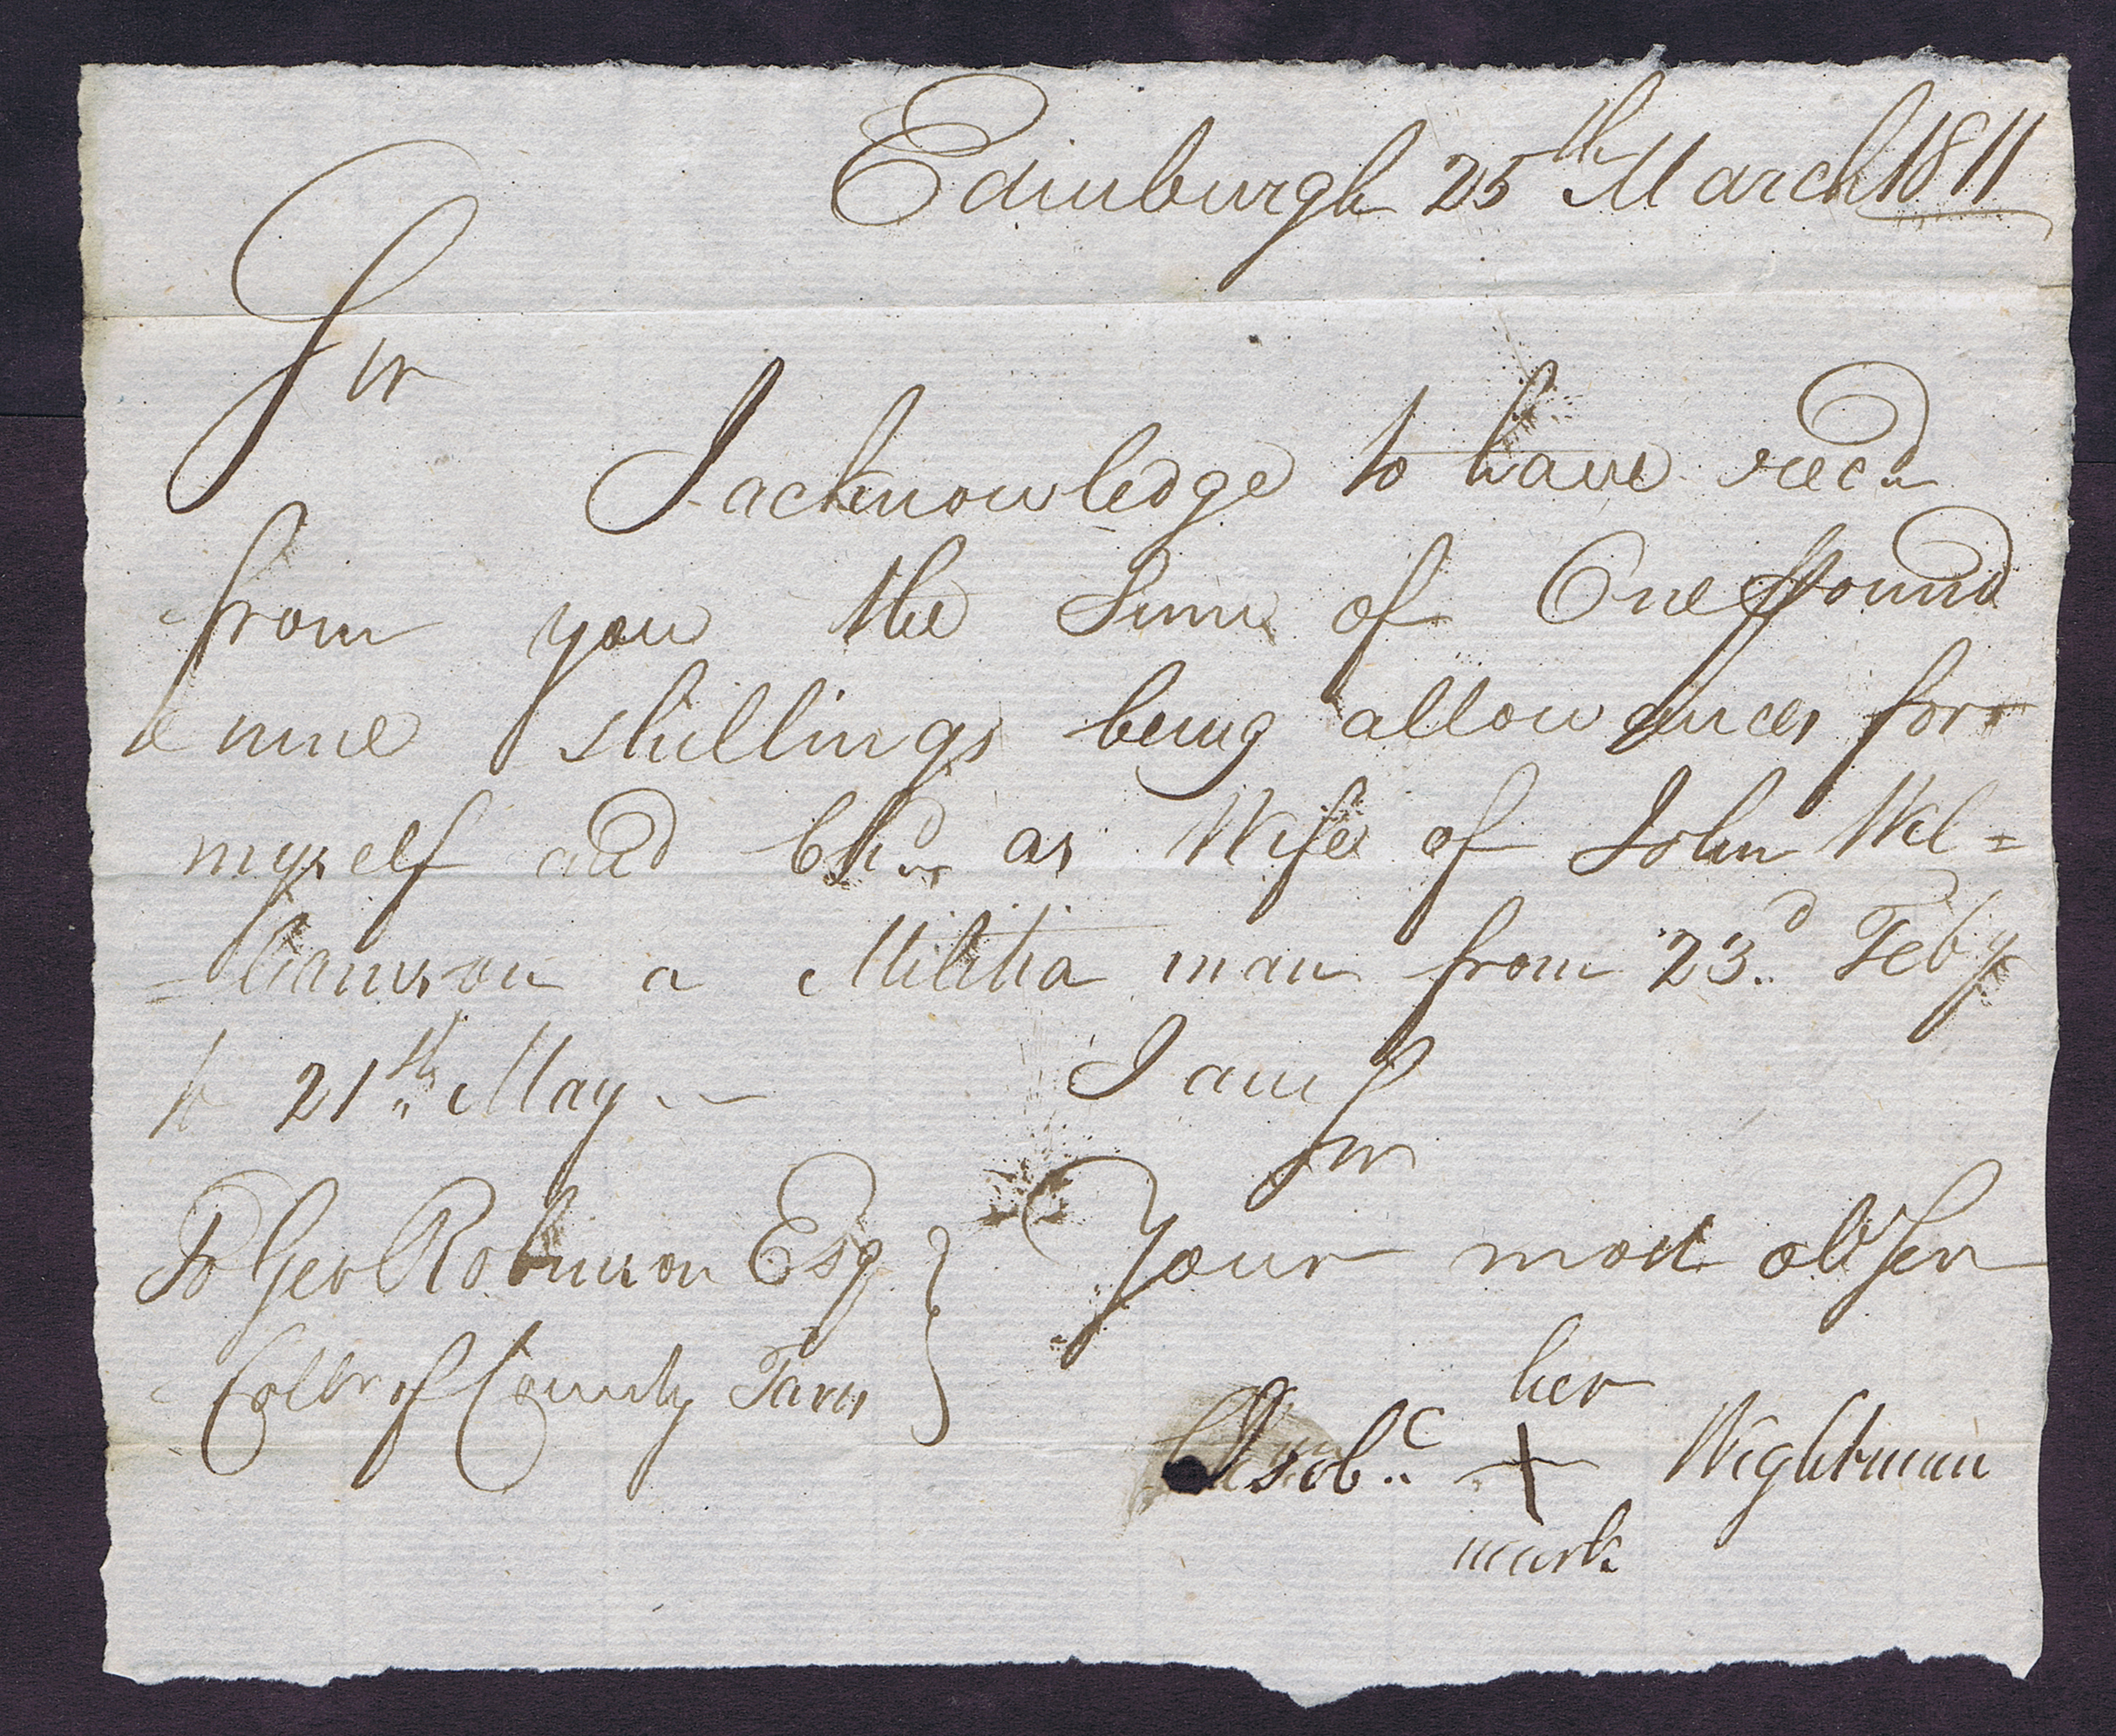 Edinburgh 25th March 1811
Sir
I acknowledge to have recd
from you the Sum of One Pound
& nine shillings being allowances for
myself and Chd as Wife of John Wil=
=liamson a Militia man from 23d Feby
to 21st May
I am
Sir
To Geo Robinson Esq. } Your most obt Ser
Collr of County Taxes
her
Isob. X Wightman
mark